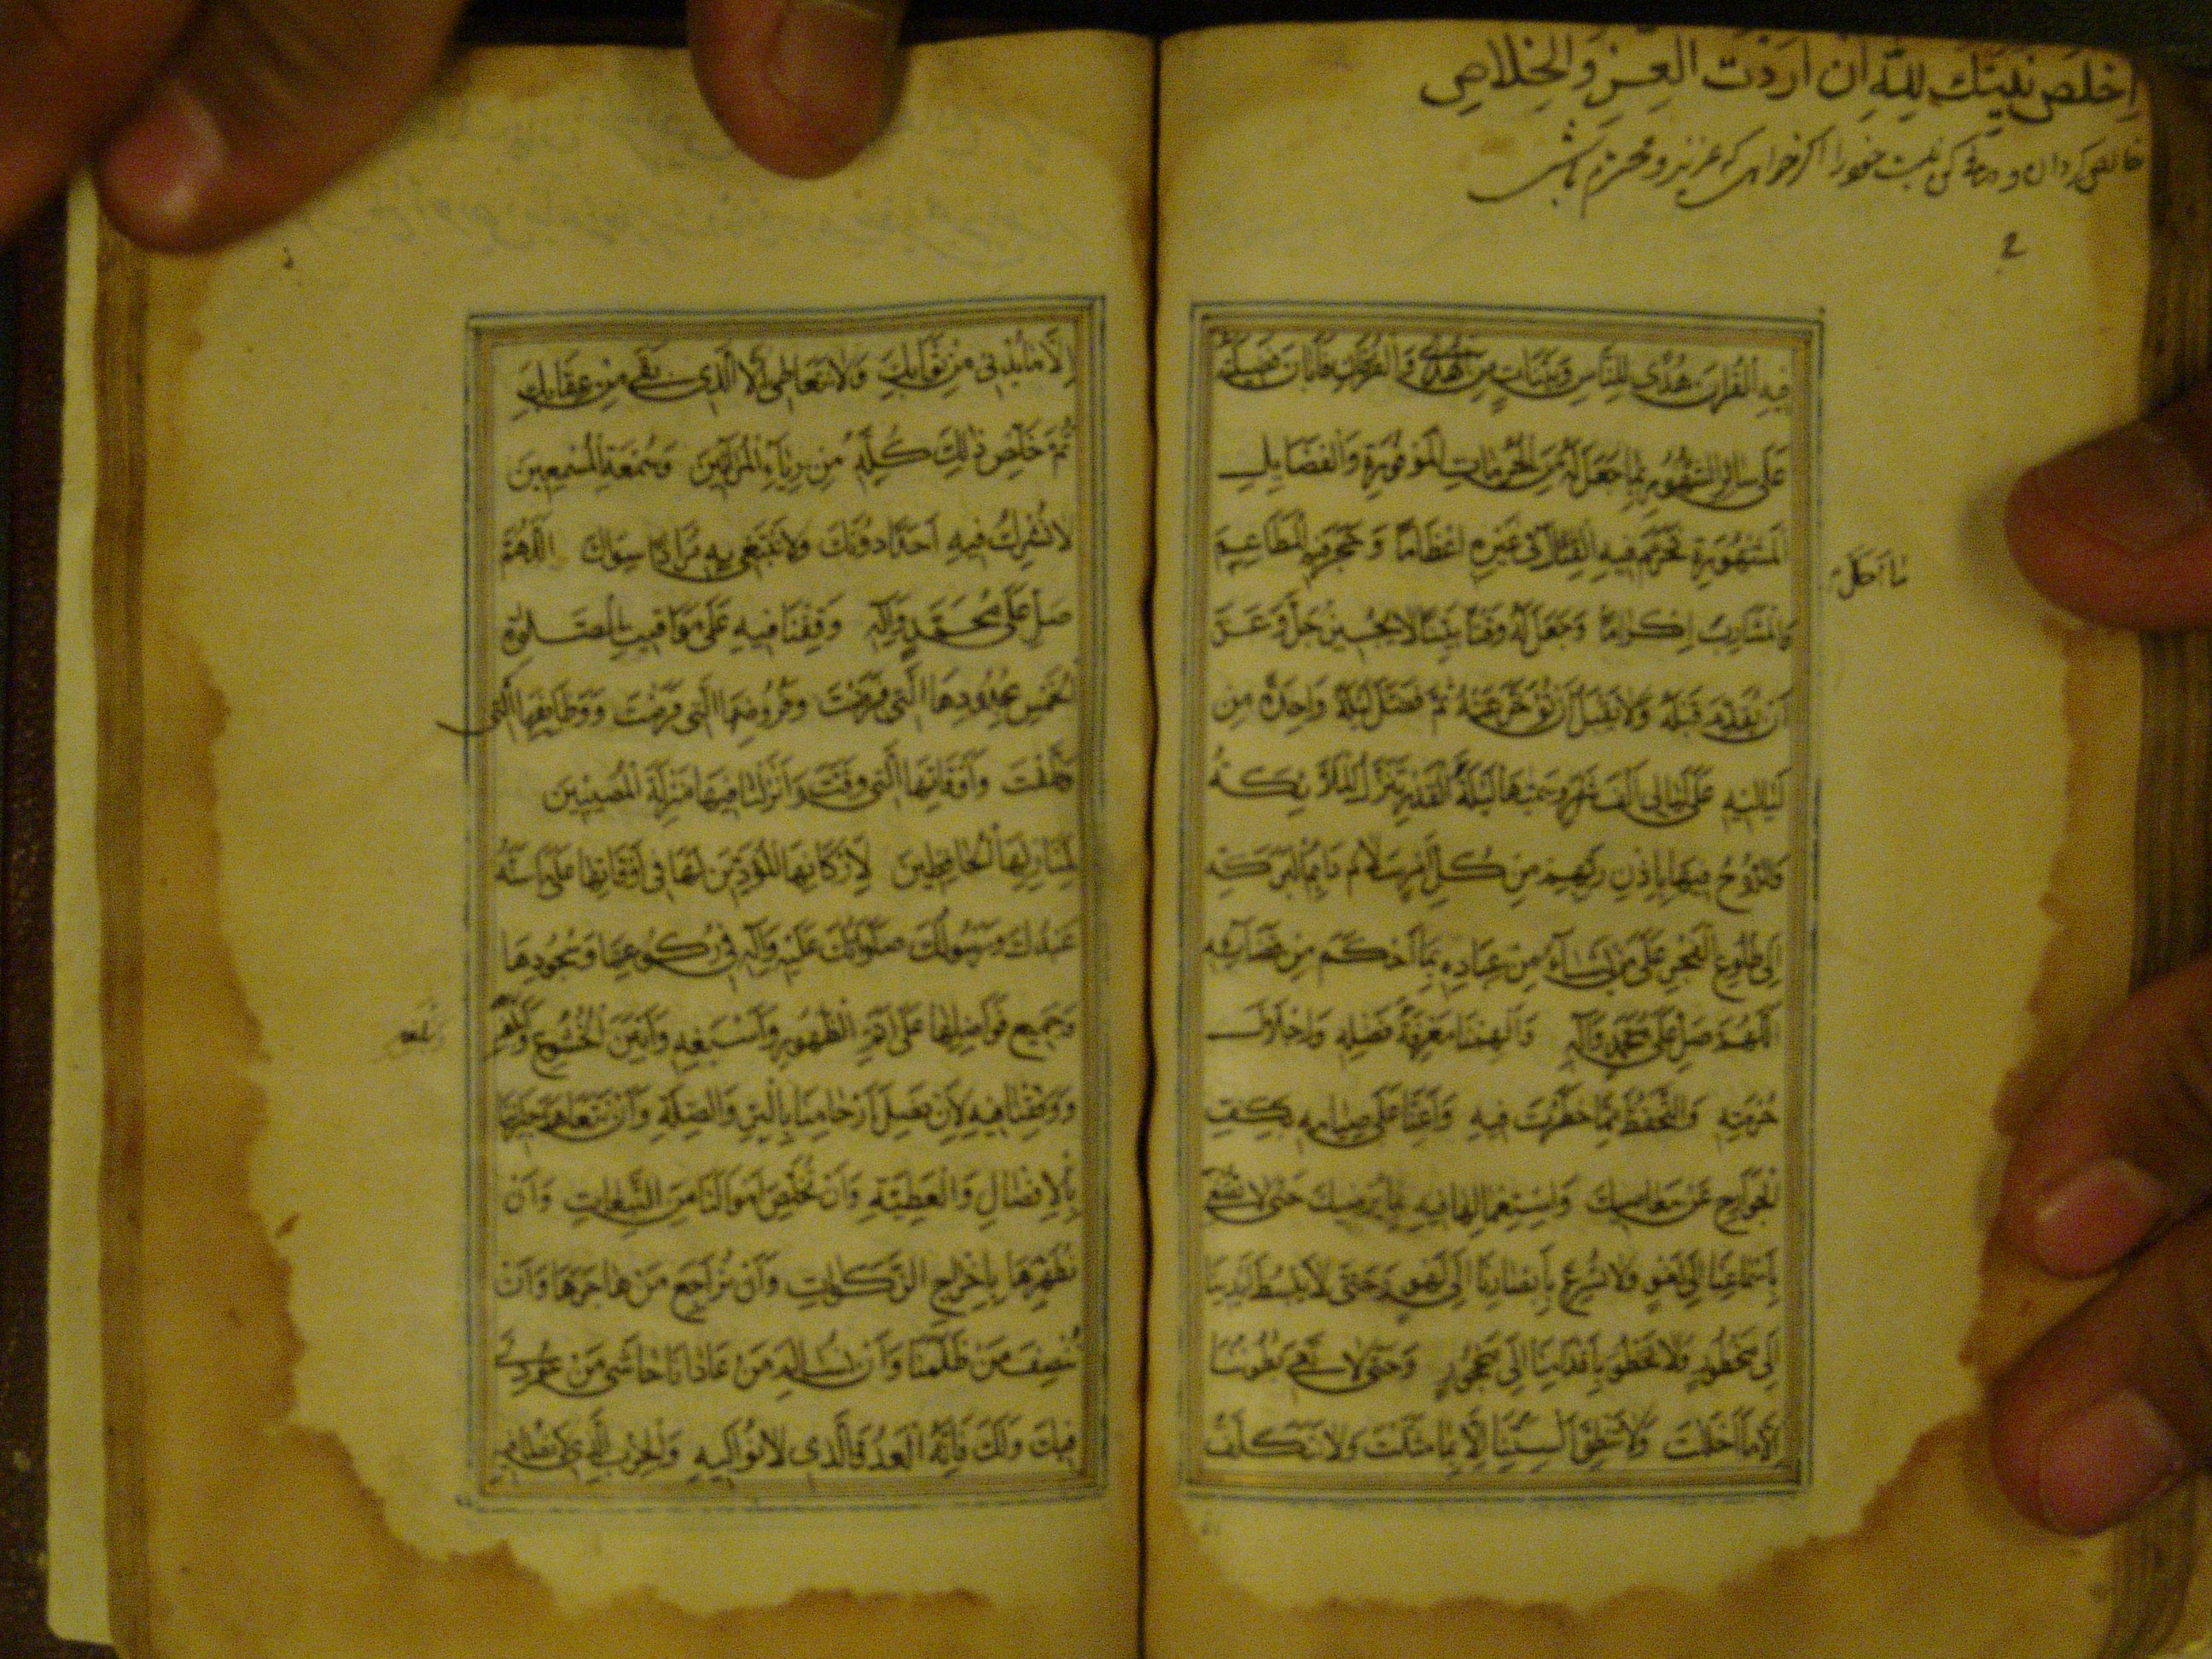 اِخْلَصْ نِيَّتَكَ لِلّٰهِ اِنْ اَرَدْتَ الْعِزَّ وَالْخَلاصِ
خالص كردان و نيت خود را اكر خواهى كه عزيز و محترم باشى
٢
فِيهِ الْقُرْانَ هُدًى لِلنَّاسِ وَبَيِّنَاتٍ مِنَ الْهُدٰى وَالْفُرْقَانِ فَاَبَانَ فَضِيلَتَهُ
عَلٰى سَائِرِ الشُّهُورِ بِمَا جَعَلَ لَهُ مِنَ الْحُرُمَاتِ الْمَوْفُورَةِ وَالْفَضَايِلِ
الْمَشْهُورَةِ فَحَرَّمَ فِيهِ فِى غَيْرِهِ اِعْظَامًا وَحَجَرَ فِيهِ الْمَطَاعِمَ
وَالْمَشَارِبَ اِكْرَامًا وَجَعَلَ لَهُ وَقْتًا بَيِّنًا لَا يُجِيزُ جَلَّ وَعَزَّ
اَنْ يُقَدَّمَ قَبْلَهُ وَلَا يَقْبَلُ اَنْ يُؤَخَّرَ عَنْهُ ثُمَّ فَضَّلَ لَيْلَةً وَاحِدَةً مِنْ
لَيَالِيهِ عَلٰى لَيَالِى اَلْفِ شَهْرٍ وَسَمَّاهَا لَيْلَةَ الْقَدْرِ تَنَزَّلُ الْمَلَائِكَةُ
وَالرُّوحُ فِيهَا بِاِذْنِ رَبِّهِمْ مِنْ كُلِّ اَمْرٍ سَلَامٌ دَايِمُ الْبَرَكَةِ
اِلٰى طُلُوعِ الْفَجْرِ عَلٰى مَنْ يَشَاءُ مِنْ عِبَادِهِ بِمَا اَحْكَمَ مِنْ قَضَائِهِ
اَللّٰهُمَّ صَلِّ عَلٰى مُحَمَّدٍ وَاٰلِهِ وَاَلْهِمْنَا مَعْرِفَةَ فَضْلِهِ وَاِجْلَالَ
حُرْمَتِهِ وَالتَّحَفُّظَ مِمَّا حَظَرْتَ فِيهِ وَاَعِنَّا عَلٰى صِيَامِهِ بِكَفِّ
الْجَوَارِحِ عَنْ مَعَاصِيكَ وَاسْتِعْمَالِهَا فِيهِ بِمَا يُرْضِيكَ حَتّٰى لَا نُصْغِىَ
بِاَسْمَاعِنَا اِلٰى لَغْوٍ وَلَا نُسْرِعَ بِاَبْصَارِنَا اِلٰى لَهْوٍ وَحَتّٰى لَا نَبْسُطَ اَيْدِيَنَا
اِلٰى مَحْظُورٍ وَلَا نَخْطُوَ بِاَقْدَامِنَا اِلٰى مَحْجُورٍ وَحَتّٰى لَا تَعِىَ بُطُونُنَا
اِلَّا مَا اَحْلَلْتَ وَلَا تَنْطِقَ اَلْسِنَتُنَا اِلَّا بِمَا مَثَّلْتَ وَلَا نَتَكَلَّفَ
مَا اَحَلَّ
اِلَّا مَا يُدْنِى مِنْ ثَوَابِكَ وَلَا نَتَعَاطٰى اِلَّا الَّذِى يَقِى مِنْ عِقَابِكَ
ثُمَّ خَلِّصْ ذٰلِكَ كُلَّهُ مِنْ رِيَاءِ الْمُرَائِينَ وَسُمْعَةِ الْمُسْمِعِينَ
لَا نُشْرِكُ فِيهِ اَحَدًا دُونَكَ وَلَا نَبْتَغِى بِهِ مُرَادًا سِوَاكَ اَللّٰهُمَّ
صَلِّ عَلٰى مُحَمَّدٍ وَاٰلِهِ وَقِفْنَا فِيهِ عَلٰى مَوَاقِيتِ الصَّلٰوةِ
الْخَمْسِ بِحُدُودِهَا الَّتِى وَفُرُوضِهَا الَّتِى فَرَضْتَ وَوَظَائِفِهَا الَّتِى
وَظَّفْتَ وَاَوْقَاتِهَا الَّتِى وَقَّتَّ وَاَنْزِلْنَا فِيهَا مَنْزِلَةَ الْمُصِيبِينَ
لِمَنَازِلِهَا الْحَافِظِينَ لِاَرْكَانِهَا الْمُؤَدِّينَ لَهَا فِى اَوْقَاتِهَا عَلٰى مَا سَنَّهُ
عَبْدُكَ وَرَسُولُكَ صَلَوَاتُكَ عَلَيْهِ وَاٰلِهِ فِى رُكُوعِهَا وَسُجُودِهَا
وَجَمِيعِ فَوَاضِلِهَا عَلٰى اَتَمِّ الطَّهُورِ وَاَسْبَغِهِ وَاَبْيَنِ الْخُشُوعِ
وَوَفِّقْنَا فِيهِ لِاَنْ نَصِلَ اَرْحَامَنَا بِالْبِرِّ وَالصِّلَةِ وَاَنْ نَتَعَاهَدَ جِيرَانَنَا
بِالْاِفْضَالِ وَالْعَطِيَّةِ وَاَنْ نُخَلِّصَ اَمْوَالَنَا مِنَ التَّبِعَاتِ وَاَنْ
نُطَهِّرَهَا بِاِخْرَاجِ الزَّكَوَاتِ وَاَنْ نُرَاجِعَ مَنْ هَاجَرَنَا وَاَنْ
نُنْصِفَ مَنْ ظَلَمَنَا وَاَنْ نُسَالِمَ مَنْ عَادَانَا حَاشٰى مَنْ عُودِىَ
فِيكَ وَلَكَ فَاِنَّهُ الْعَدُوُّ الَّذِى لَا نُوَالِيهِ وَالْحِزْبُ الَّذِى